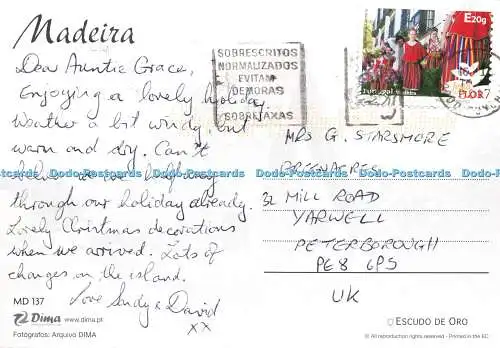 Madeira
Dear Auntie Grace,
Enjoying a lovely holiday.
Weather a bit windy but
warm and dry. Can't
believe we're halfway
through our holiday already.
Lovely Christmas decorations
when we arrived. Lots of
changes on the island.
Love Andy & David
xx
MD 137
Dima www.dima.pt
Fotógrafos: Arquivo DIMA
SOBRESCRITOS
NORMALIZADOS
EVITAM
DEMORAS
E
SOBRETAXAS
E20g
Portugal
FLOR
MRS G. STARSMERE
GREENACRES
32 MILL ROAD
YARWELL
PETERBOROUGH
PE8 6PS
UK
ESCUDO DE ORO
© All reproduction rights reserved. Printed in the EC
Dodo-Postcards Dodo-Postcards Dodo-Postcards Dodo-Postcards Dodo-Postcards